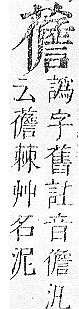 譌字舊註音儋汎
云棘艸名泥